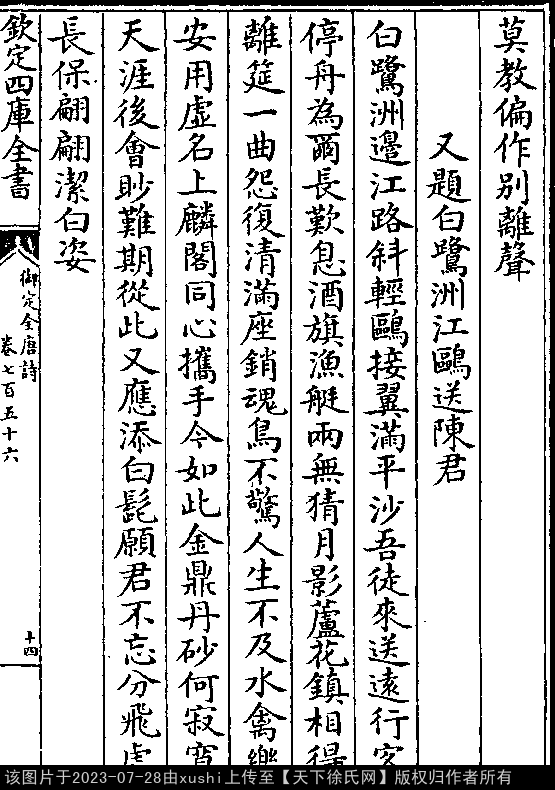 莫教偏作别離聲
又題白鷺洲江鷗送陳君
白鷺洲邊江路斜輕鷗接翼滿平沙吾徒來送逺行客
停舟為爾長歎息酒旗漁艇兩無猜月影蘆花鎮相得
離筵一曲怨復清滿座銷魂鳥不驚人生不及水禽樂
安用虚名上麟閣同心攜手今如此金鼎丹砂何寂寞
天涯後會眇難期從此又應添白髭願君不忘分飛處
長保翩翩潔白姿
欽定四庫全書
御定全唐詩
卷七百五十六
十四
该图片于2023-07-28由xushi上传至【天下徐氏网】版权归作者所有